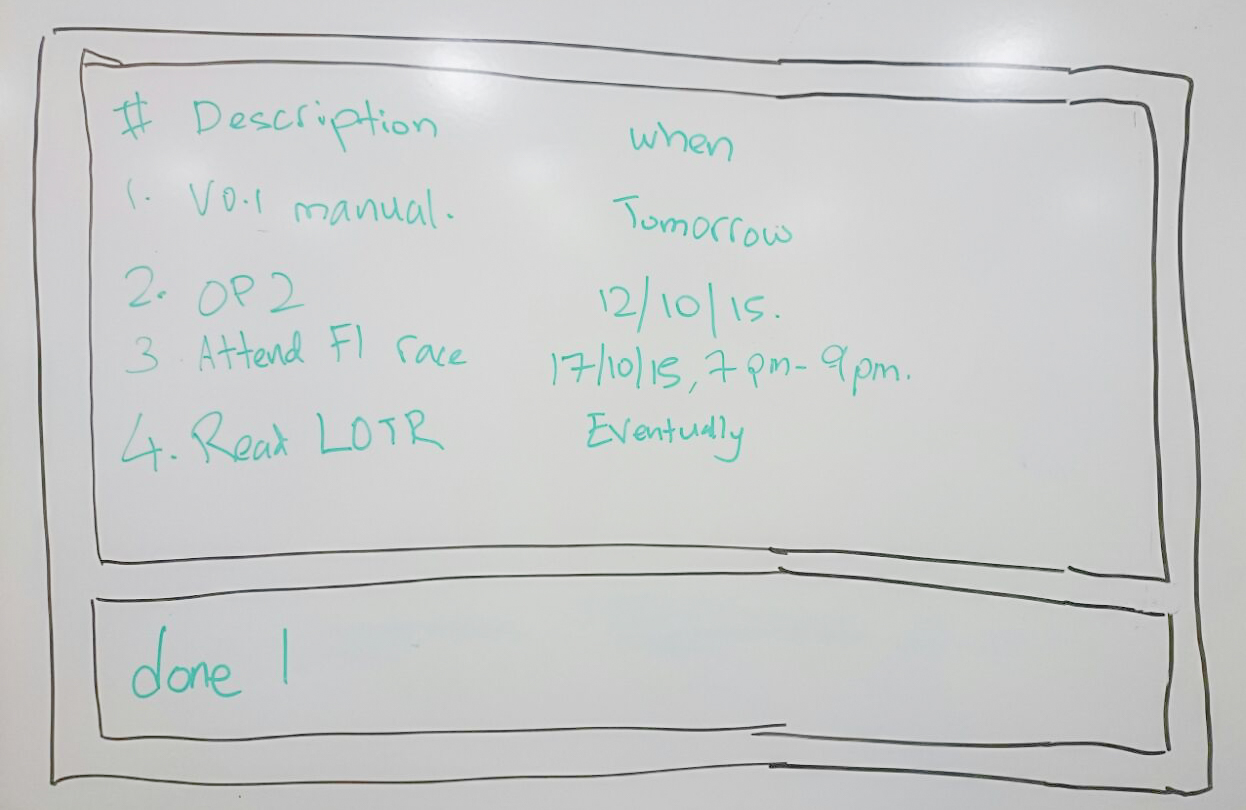 # Description when
1. V0.1 manual. Tomorrow
2. OP2 12/10/15.
3 Attend F1 race 17/10/15, 7pm-9pm.
4. Read LOTR Eventually
done 1